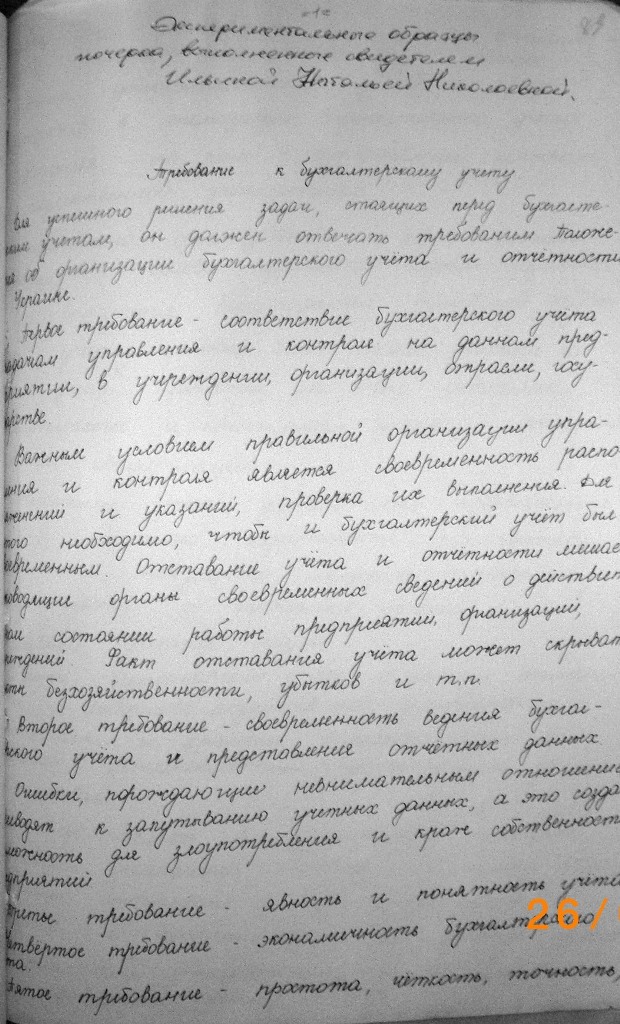 -1-
89
Экспериментальные образцы
почерка, выполненные свидетелем
Ильиной Натальей Николаевной.
Требование к бухгалтерскому учету
Для успешного решения задач, стоящих перед бухгалте-
ским учетам, он должен отвечать требованием Положе-
ия об организации бухгалтерского учёта и отчётности
Украине.
Первое требование - соответствие бухгалтерского учёта
задачам управления и контроле на данном пред-
приятии, в учреждении, организации, отрасли, госу-
дарстве.
Важным условием правильной организации упра-
ления и контроля является своевременность распо-
яжений и указаний, проверка их выполнения. Для
этого необходимо, чтобы и бухгалтерский учёт был
оевременным. Отставание учёта и отчётности лишае
ководящие органы своевременных сведений о действит
ном состоянии работы предприятии, организаций,
реждений. Факт отставания учёта может скрыват
кты безхозяйственности, убытков и т.п.
Второе требование - своевременность ведения бухгал-
рского учёта и представления отчётных данных
Ошибки, порождающие невнимательным отношение
иводят к запутыванию учетных данных, а это созда
зможность для злоупотребления и краж собственност
едприятий
Третье требование - явность и понятность учёта
Четвёртое требование - экономичность бухгалтерского
та.
Пятое требование - простота, чёткость, точность,
26/